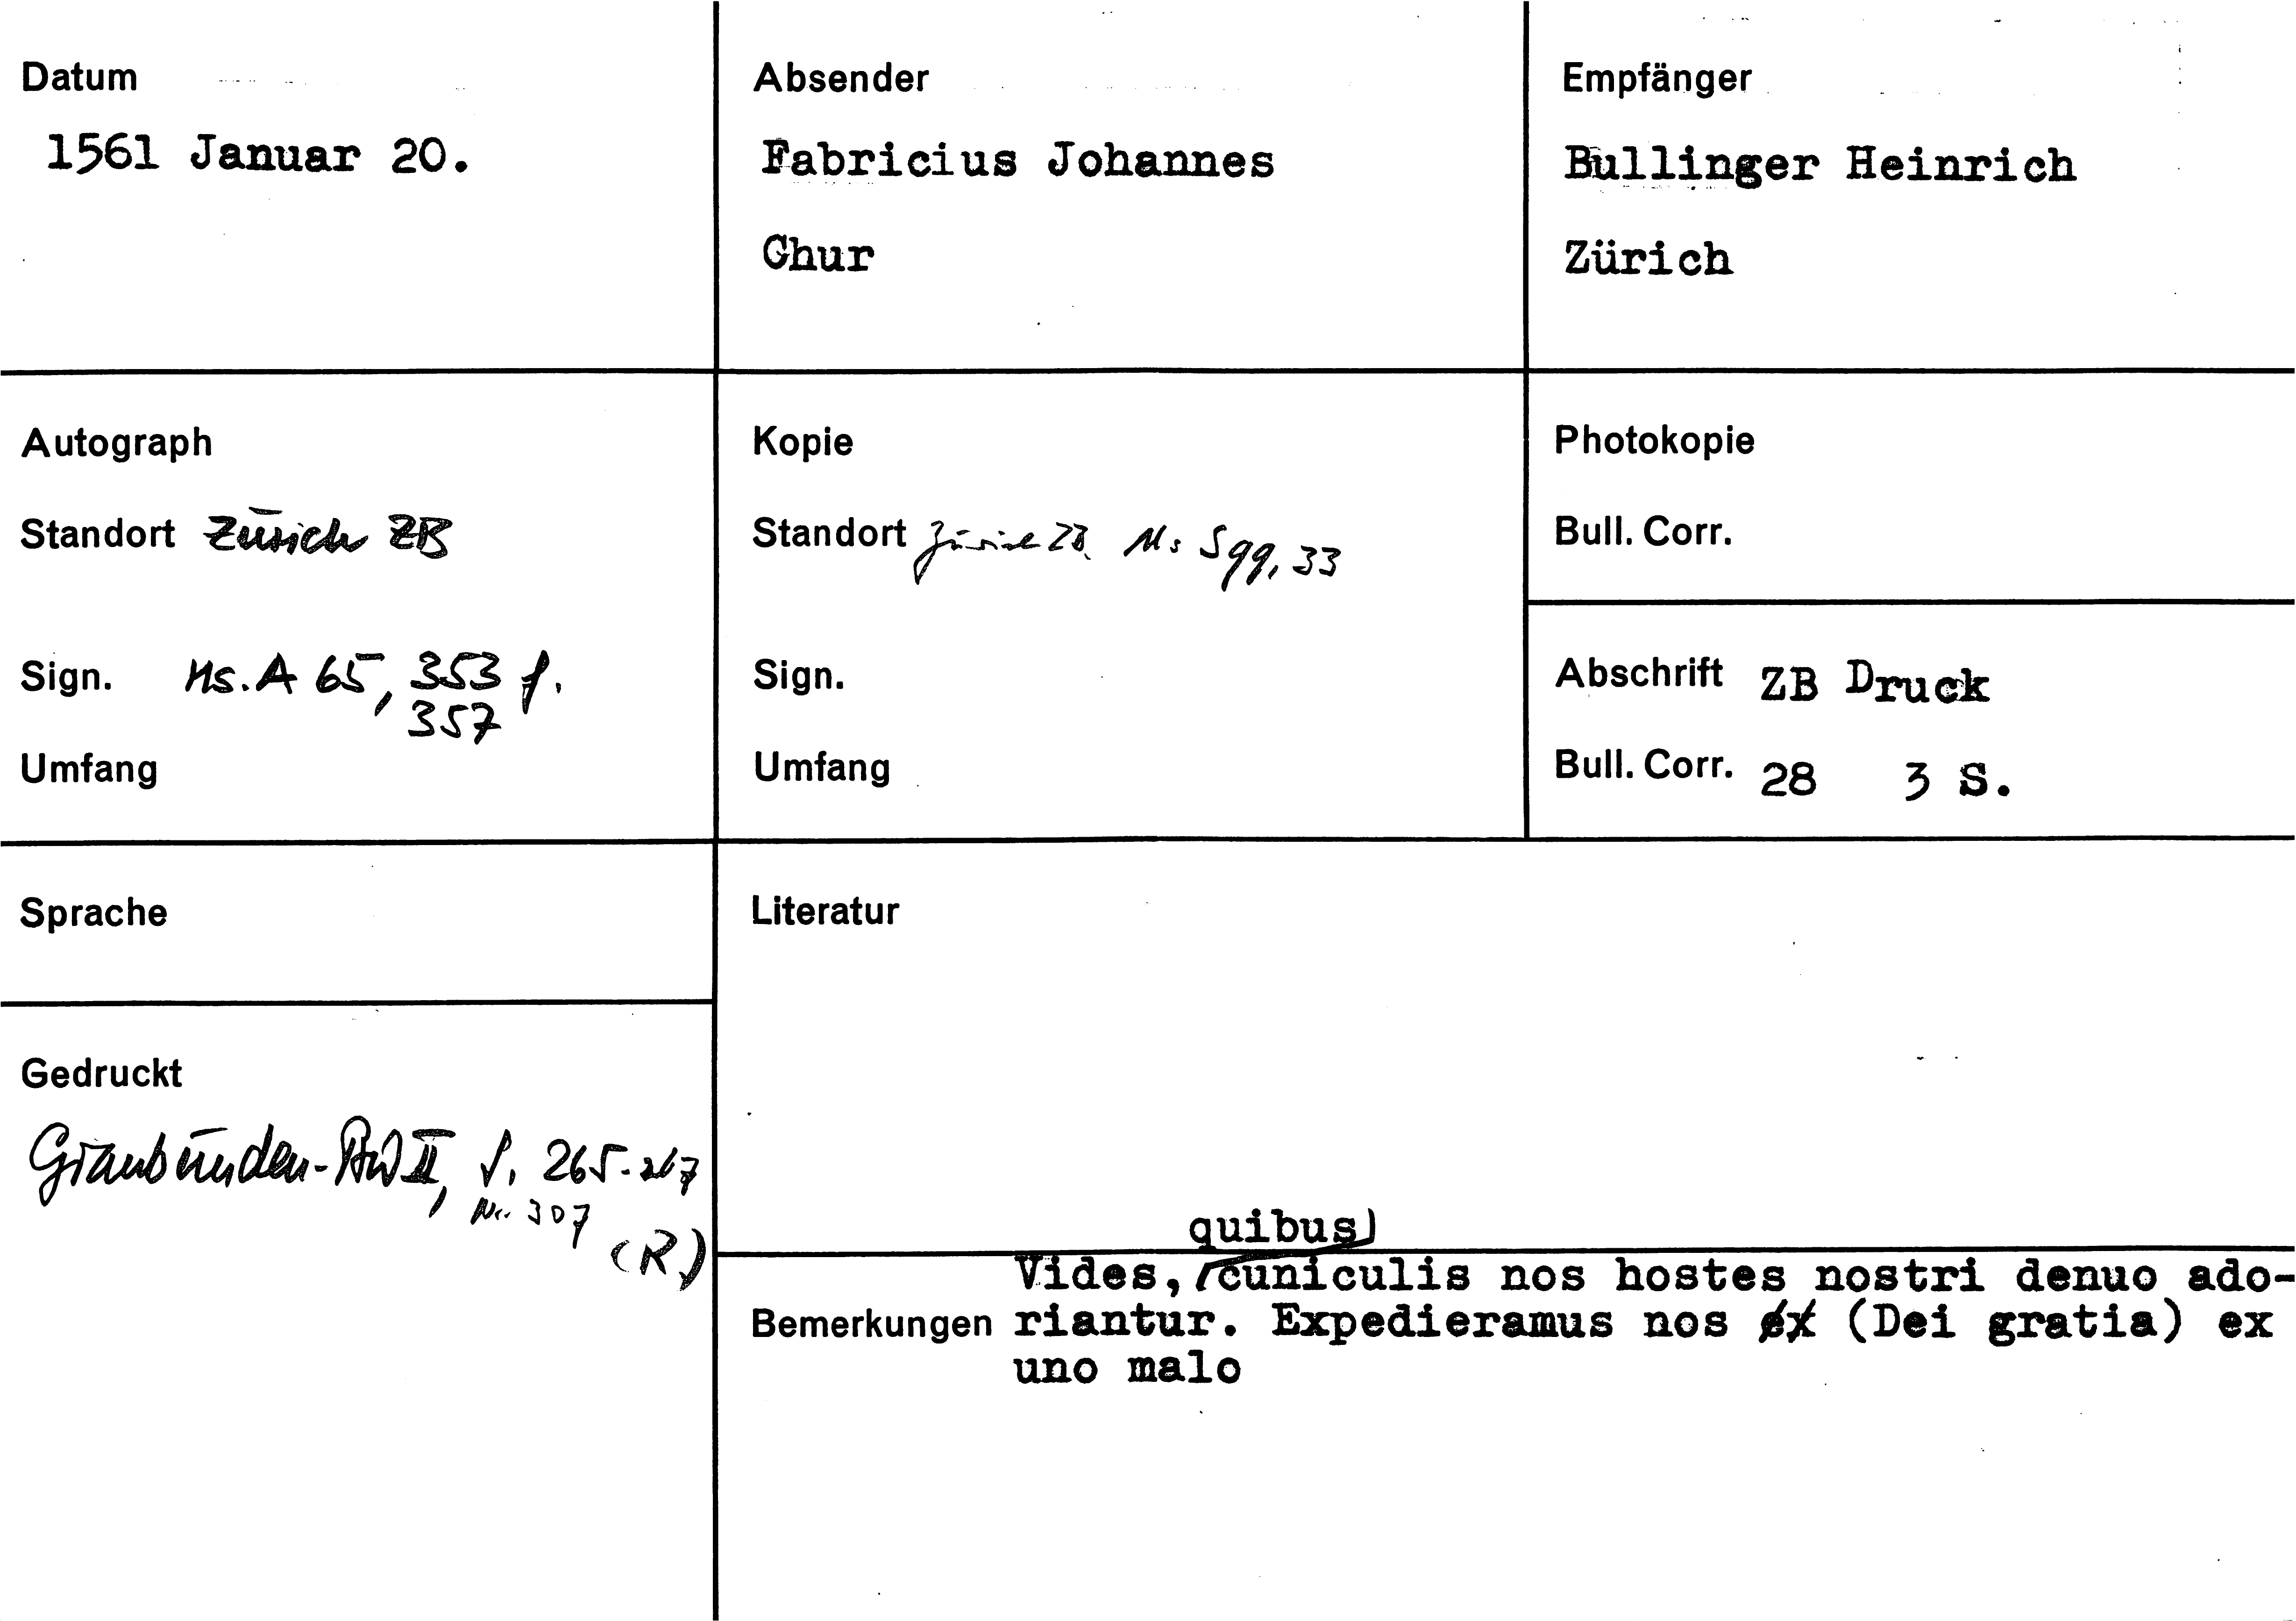 Datum
1561 Januar 20.
Absender
Fabricius Johannes
Chur
Empfänger
Bullinger Heinrich
Zürich
Autograph
Standort Zürich ZB
Sign. Ms. A 65, 353 f.
357
Umfang
Kopie
Standort Zürich ZB Ms S 99, 33
Sign.
Umfang
Photokopie
Bull. Corr.
Abschrift ZB Druck
Bull. Corr. 28 3 S.
Sprache
Gedruckt
Graubünden-BW II, S. 265-267
Nr. 307
(R)
Literatur
quibus
Vides, cuniculis nos hostes nostri denuo ado-
Bemerkungen riantur. Expedieramus nos ex (Dei gratia) ex
uno malo